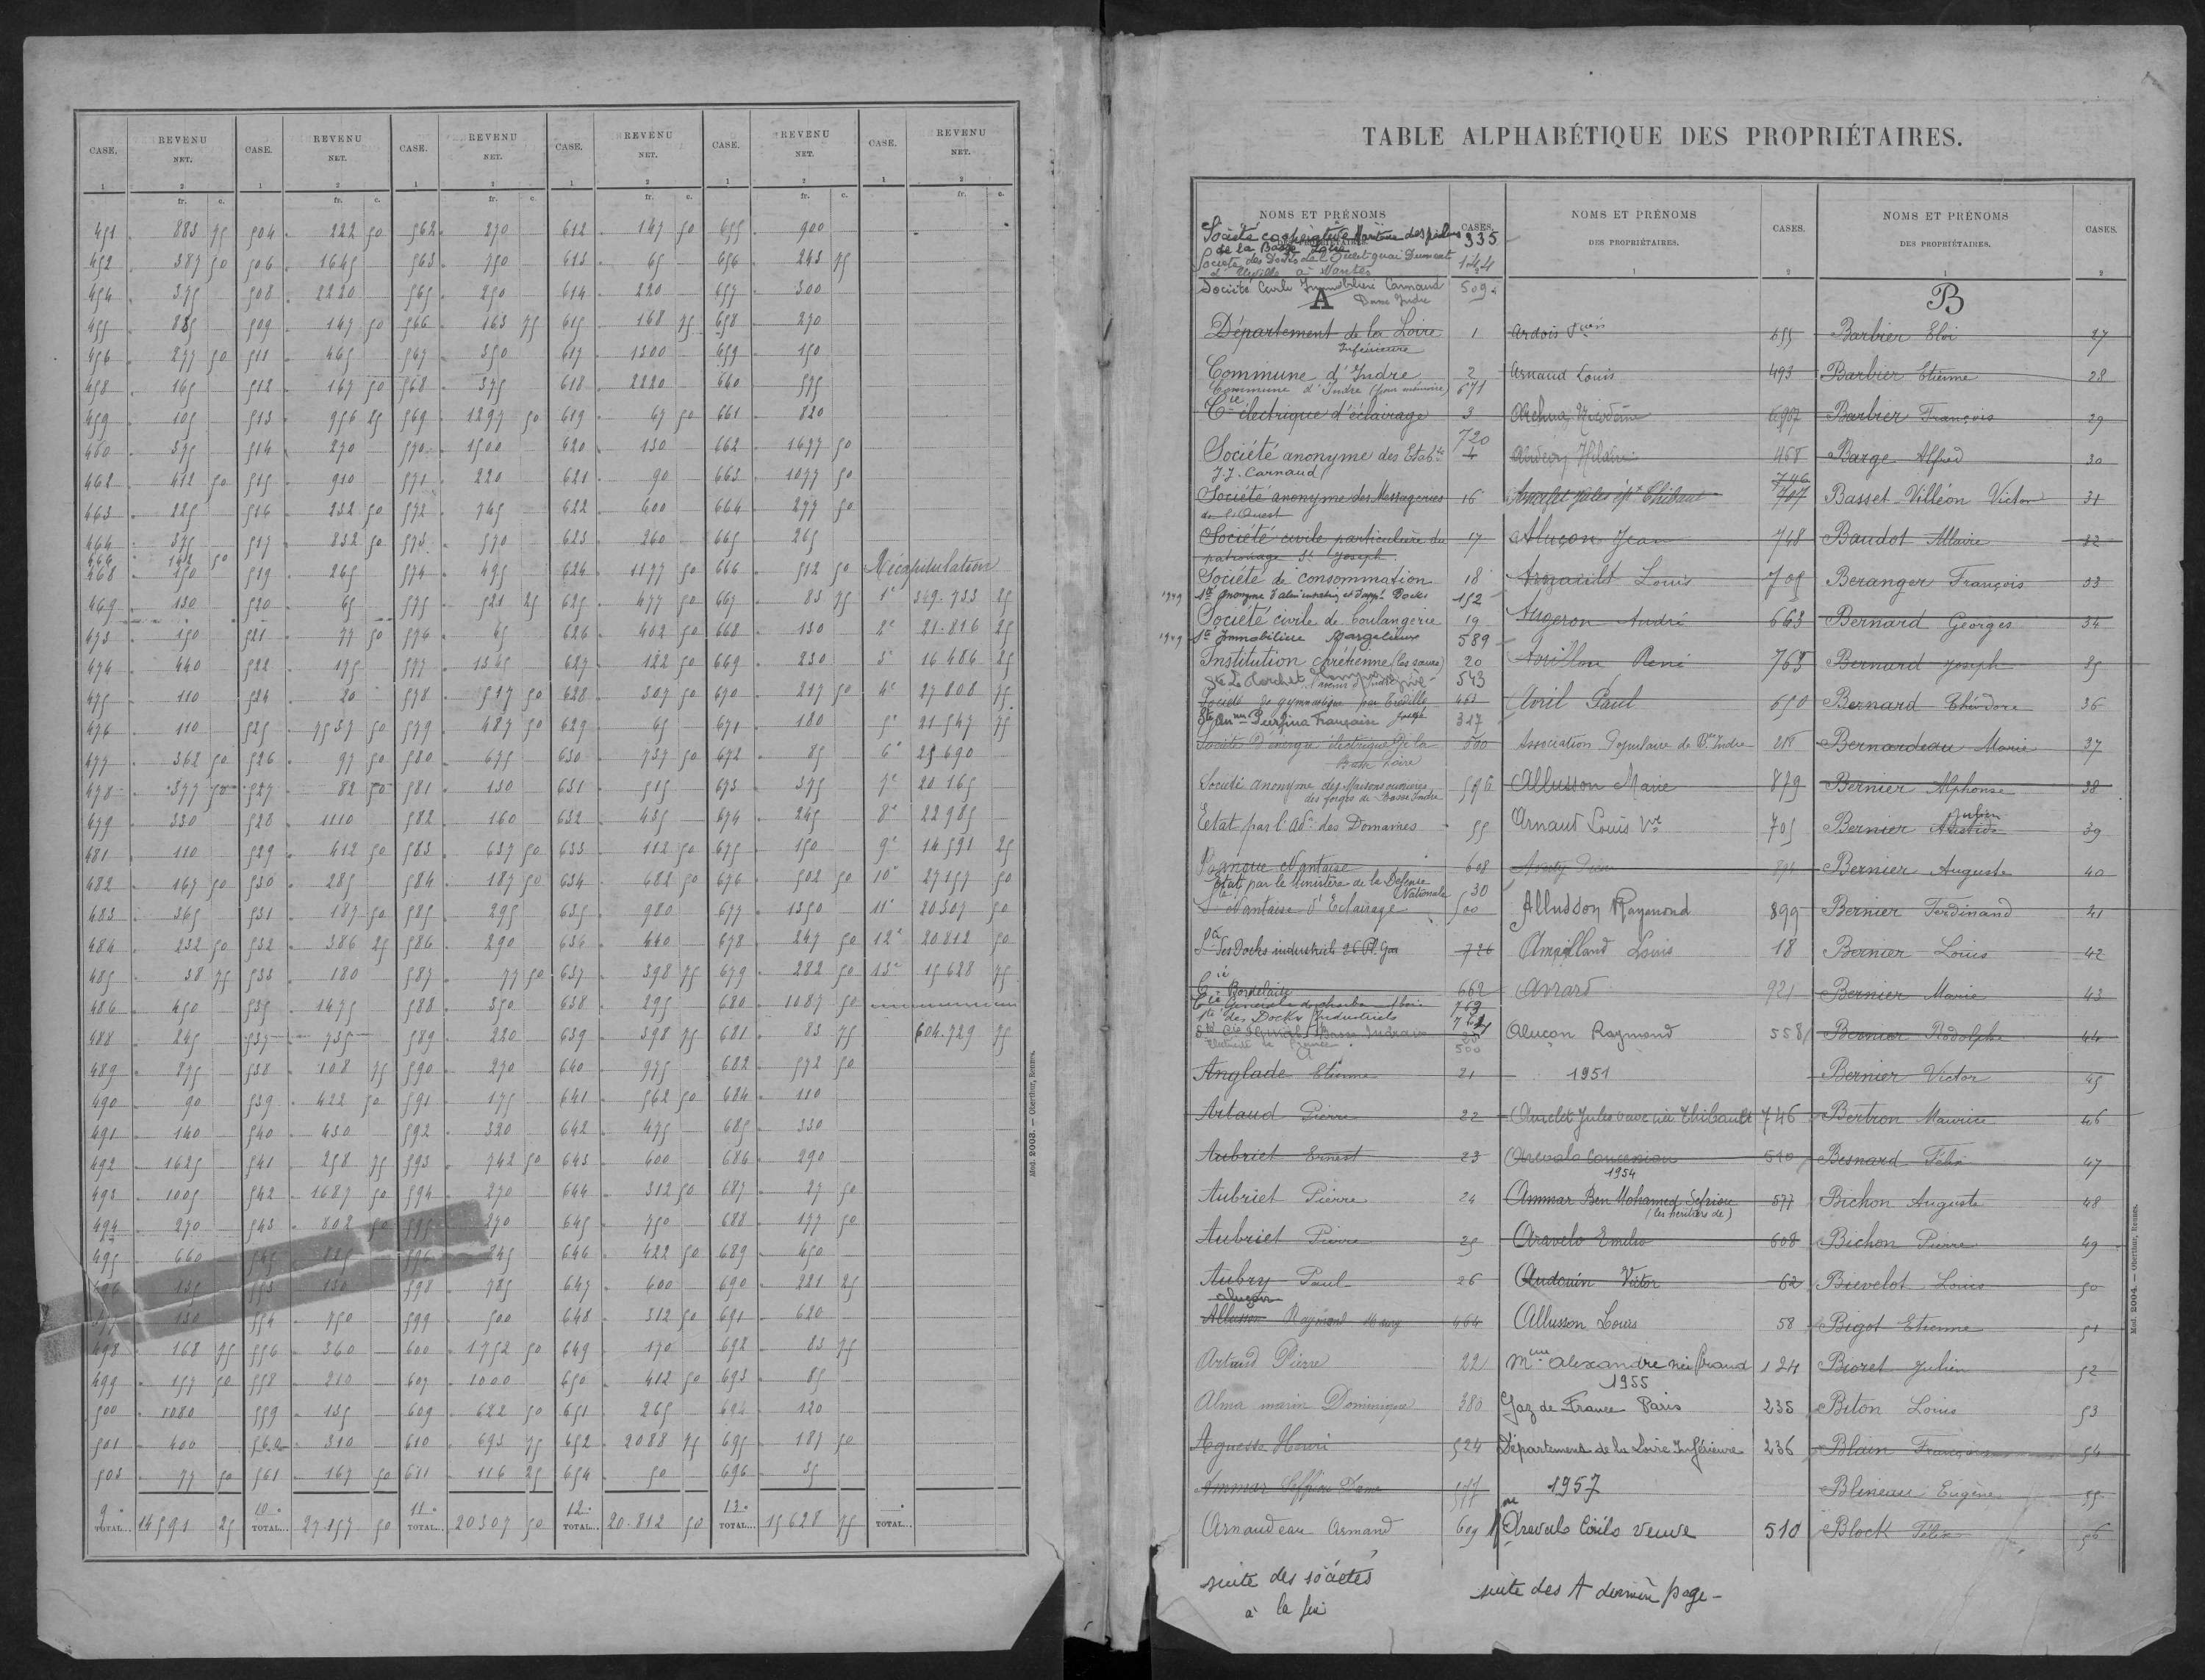 CASE. REVENU NET. CASE. REVENU NET. CASE. REVENU NET. CASE. REVENU NET. CASE. REVENU NET. CASE. REVENU NET.
1 2 1 2 1 2 1 2 1 2 1 2
fr. c. fr. c. fr. c. fr. c. fr. c. fr. c.
451 883 75 504 222 50 562 270 612 147 50 655 900
452 387 50 506 1645 563 750 613 65 656 243 75
454 375 508 2220 565 250 614 220 657 300
455 885 509 147 50 566 163 75 615 168 75 658 270
456 277 50 511 465 567 350 617 1300 659 150
458 165 512 167 50 568 375 618 2220 660 575
459 105 513 956 25 569 1297 50 619 67 50 661 820
460 375 514 270 570 1500 620 130 662 1677 50
462 412 50 515 910 571 220 621 90 663 1077 50
463 225 516 232 50 572 745 622 600 664 277 50
464 375 517 832 50 573 570 623 260 665 265
466 142 50
468 150 519 265 574 495 624 1177 50 666 512 50 Récapitulation
469 130 520 65 575 521 25 625 477 50 667 83 75 1e 349.733 25
473 150 521 77 50 576 45 626 402 50 668 130 2e 21.816 25
474 440 522 175 577 1345 627 122 50 669 230 3e 16486 25
475 110 524 20 578 517 50 628 307 50 670 217 50 4e 27808 75
476 110 525 7537 50 579 487 50 629 65 671 180 5e 21547 75
477 362 50 526 97 50 580 675 630 737 50 672 85 6e 25690
478 377 50 527 82 50 581 130 631 515 673 375 7e 20165
479 330 528 1110 582 160 632 435 674 245 8e 22985
481 110 529 412 50 583 637 50 633 112 50 675 150 9e 14591 25
482 167 50 530 285 584 187 50 634 682 50 676 502 50 10e 27157 50
483 365 531 187 50 585 295 635 980 677 1350 11e 20307 50
484 232 50 532 386 25 586 290 636 440 678 247 50 12e 20812 50
485 38 75 533 180 587 77 50 637 398 75 679 282 50 13e 15628 75
486 450 535 1475 588 350 638 295 680 1087 50
488 245 537 735 589 220 639 398 75 681 83 75 604.729 75
489 275 538 108 75 590 270 640 975 682 572 50
490 90 539 422 50 591 175 641 562 50 684 110
491 140 540 430 592 320 642 475 685 330
492 1625 541 258 75 593 742 50 643 600 686 290
493 1005 542 1687 50 594 270 644 312 50 687 27 50
494 270 543 802 50 595 270 645 750 688 177 50
495 660 545 596 845 646 422 50 689 450
496 135 553 130 598 785 647 600 690 221 25
130 554 750 599 500 648 312 50 691 620
498 168 75 556 360 600 1752 50 649 170 692 83 75
499 157 50 558 210 607 1000 650 412 50 693 85
500 1080 559 135 609 622 50 651 265 694 120
501 400 560 310 610 693 75 652 2088 75 695 187 50
503 77 50 561 167 50 611 116 25 654 50 696 35
9e TOTAL... 14591 25 10e TOTAL... 27157 50 11e TOTAL... 20307 50 12e TOTAL... 20.812 50 13e TOTAL... 15628 75 TOTAL...
Mod. 2003. — Oberthur, Rennes.
TABLE ALPHABÉTIQUE DES PROPRIÉTAIRES.
NOMS ET PRÉNOMS DES PROPRIÉTAIRES. CASES. NOMS ET PRÉNOMS DES PROPRIÉTAIRES. CASES. NOMS ET PRÉNOMS DES PROPRIÉTAIRES. CASES.
1 2 1 2
Société coopérative Maritime des pêcheurs 335
de la Basse Loire
Société des Docks de l'Ouest quai Dumont 144
d'Urville à Nantes
Société Civile Immobilière Carnaud 509
Basse Indre
A
Département de la Loire 1
Inférieure
Commune d'Indre 2
Commune d'Indre (pour mémoire) 671
Cie électrique d'éclairage 3
720
Société anonyme des Etabts 4
J.J. Carnaud
Société anonyme des Messageries 16
de l'Ouest
Société civile particulière du 17
patronage St Joseph
Société de consommation 18
1949 Sté Anonyme d'alimentation et d'appt Docks 152
Société civile de boulangerie 19
1949 Sté Immobilière 589
Institution chrétienne (les sœurs) 20
543
Société de gymnastique 461
Sté Anme Purfina Française 317
Société d'énergie électrique de la 500
Basse Loire
Société anonyme des Maisons ouvrières 596
des forges de Basse Indre
Etat par l'Adon des Domaines 55
Banque Nantaise 608
Etat par le Ministère de la Défense Nationale 30
Sté Nantaise d'Eclairage 500
Sté des Docks industriels 26 Pl. Gar 726
Cie Bordelaise 662
Cie Générale de charbon 763
Sté des Docks Industriels
500
Anglade Etienne 21
Artaud Pierre 22
Aubriet Ernest 23
Aubriet Pierre 24
Aubriet Pierre 25
Aubry Paul 26
Aluçon
Allusson Raymond 464
Artaud Pierre 22
Alma marin Dominique 380
Agnesse Henri 524
Ammar Seffrion Dame 577
Arnaudeau Armand 609
suite des sociétés
à la fin
Ardois 655
Arnaud Louis 493
Hilaire 468
746
Ancelet Jules épx Thibault 747
Aluçon Jean 748
Arnault Louis 705
Augeron André 663
Avrillon René 763
Avril Paul 650
Association Populaire de Bse Indre 218
Allusson Marie 879
Arnaud Louis Vve 705
Allusson Raymond 899
Ampilland Louis 18
Avrard 921
Aluçon Raymond 558
1951
Ancelet Jules veuve née Thibault 746
Arevalo Concension 510
1954
Ammar Ben Mohamed Sefriou 577
(les héritiers de)
Aravelo Emilio 608
Audouin Victor 62
Allusson Louis 58
Mme Alexandre née Giraud 124
1955
Gaz de France Paris 235
Département de la Loire Inférieure 236
1957
Arevalo Cirilo veuve 510
suite des A dernière page -
B
Barbier Eloi 27
Barbier Etienne 28
Barbier François 29
Barge Alfred 30
Basset-Villéon Victor 31
Baudot Altaire 32
Beranger François 33
Bernard Georges 34
Bernard Joseph 35
Bernard Théodore 36
Bernardeau Marie 37
Bernier Alphonse 38
Julien
Bernier Aristide 39
Bernier Auguste 40
Bernier Ferdinand 41
Bernier Louis 42
Bernier Marie 43
Bernier Rodolphe 44
Bernier Victor 45
Bertron Maurice 46
Besnard Félix 47
Bichon Auguste 48
Bichon Pierre 49
Bievelot Louis 50
Bigot Etienne 51
Bioret Julien 52
Biton Louis 53
Blain François 54
Blineau Eugène 55
Block Félix 56
Mod. 2004. — Oberthur, Rennes.